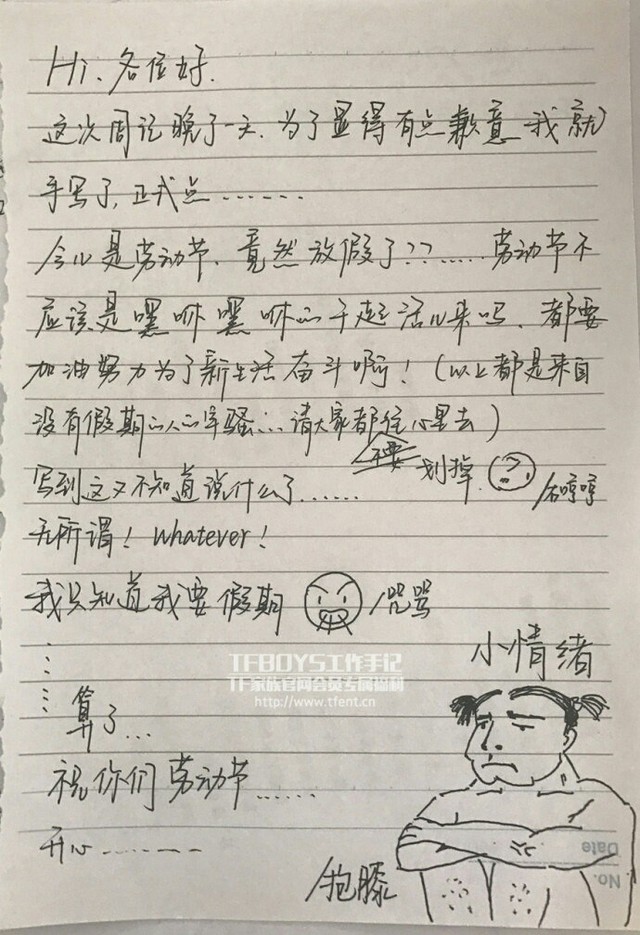 Hi、各位好.
这次周记晚了一天.为了显得有点歉意我就
手写了,正式点......
今儿是劳动节.竟然放假了??.....劳动节不
应该是嘿咻嘿咻的干起活儿来吗.都要
加油努力为了新生活奋斗啊!(以上都是来自
没有假期的人的牢骚...请大家都往心里去)
不要 划掉.
写到这又不知道说什么了...... /右哼哼
无所谓!whatever!
我只知道我要假期 /咒骂
TFBOYS工作手记
TF家族官网会员专属福利
http://www.tfent.cn
小情绪
算了...
祝你们劳动节......
开心.......
/抱膝
Date
No.